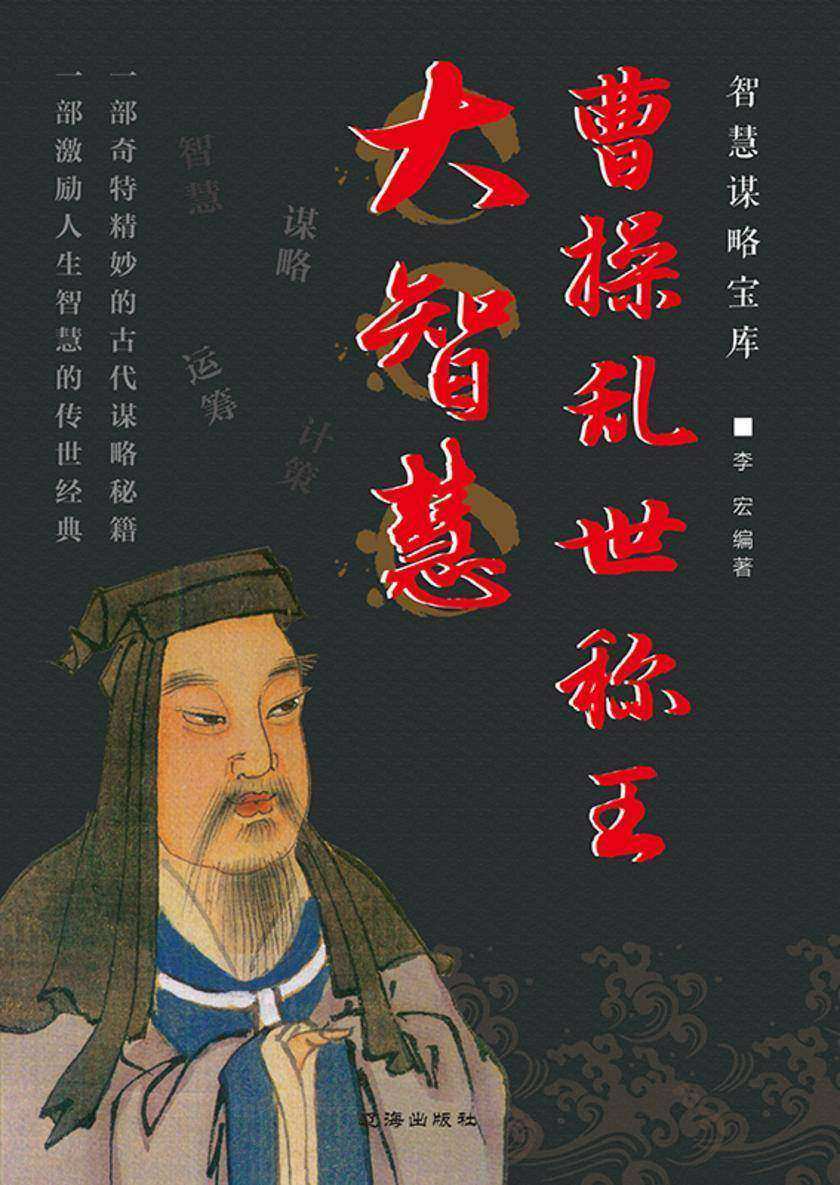 智慧谋略宝库
李宏编著
曹操乱世称王
大智慧
谋略
计策
智慧
运筹
一部奇特精妙的古代谋略秘籍
一部激励人生智慧的传世经典
辽海出版社